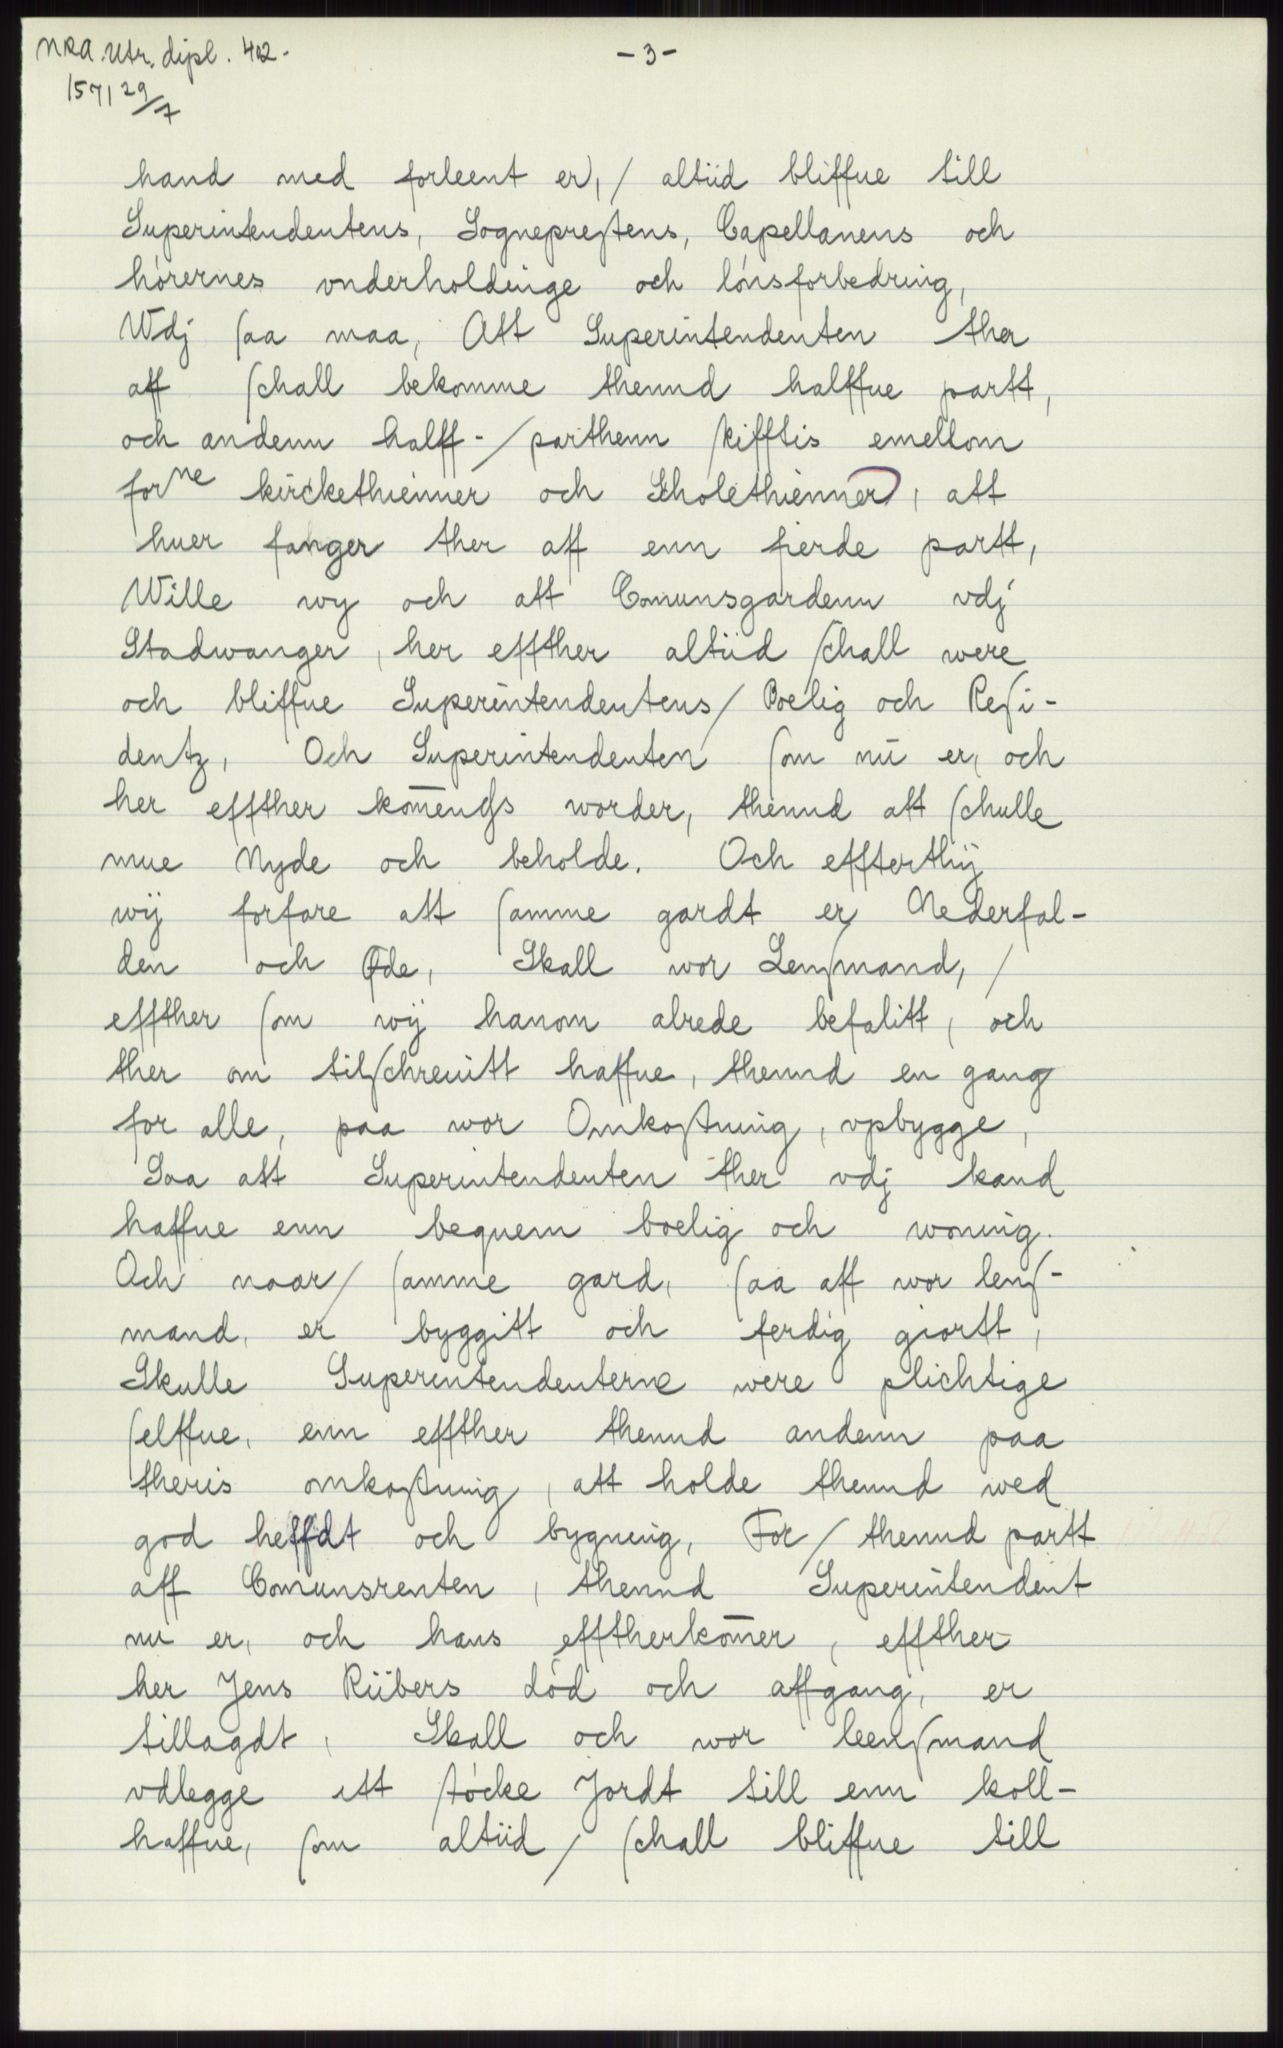 NRA. Utr. dipl. 402.
- 3 -
1571 29/7
hand med forleent er, / altiid bliffue till
Superintendentens, Sogneprestens, Capellanens och
hórernes vnderholdinge och lónsforbedring,
Wdj saa maa, Att Superintendenten ther
aff schall bekomme thennd halffue partt,
och andenn halff-/parthenn skifftis emellom
forne kirckethienner och Scholethienner, att
huer fanger ther aff enn fierde partt,
Wille wy och att Comunsgardenn vdj
Stadwanger, her effther altiid schall were
och bliffue Superintendentens / Boelig och Resi-
dentz, Och Superintendenten som nu er, och
her effther kom̄endes worder, thennd att schulle
mue Nyde och beholde. Och effterthij
wij forfare att samme gardt er Nederfal-
den och Øde, Skall wor Lensmand, /
effther som wij hanom alrede befalitt, och
ther om tilschreuitt haffue, thennd en gang
for alle, paa wor Omkostning, vpbygge,
Saa att Superintendenten ther vdj kand
haffue enn bequem boelig och woning.
Och naar / samme gard, saa aff wor lens-
mand, er byggitt och ferdig giortt,
Skulle Superintendenterne were plichtige
selffue, enn effther thennd andenn paa
theris omkostning, att holde thennd wed
god heffdt och bygning, For / thennd partt
aff Comunsrenten, thennd Superintendent
nu er, och hans efftherkom̄er, effther
her Jens Riibers dód och affgang, er
tillagdt, Skall och wor leensmand
vdlegge ett stócke Jordt till enn koll-
haffue, som altiid / schall bliffue till